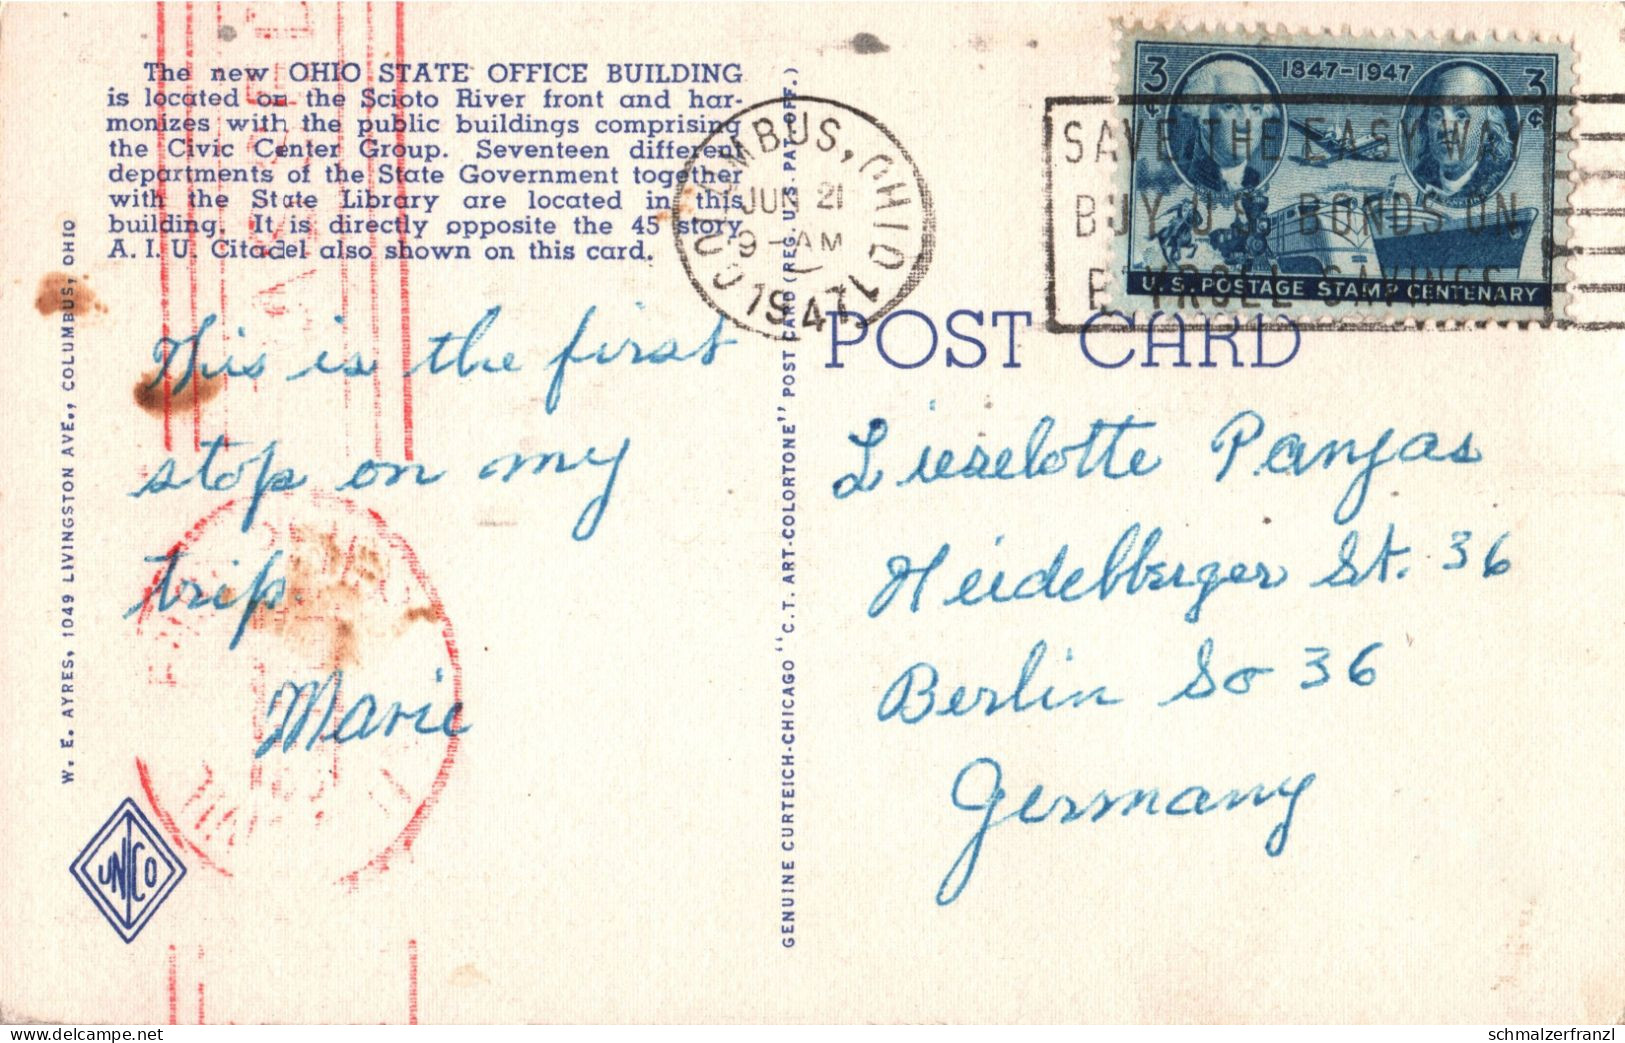 The new OHIO STATE OFFICE BUILDING
is located on the Scioto River front and har-
monizes with the public buildings comprising
the Civic Center Group. Seventeen different
departments of the State Government together
with the State Library are located in this
building. It is directly opposite the 45 story
A. I. U. Citadel also shown on this card.
This is the first
stop on my
trip.
Marie
W. E. AYRES, 1049 LIVINGSTON AVE., COLUMBUS, OHIO
UNICO
GENUINE CURTEICH-CHICAGO "C.T. ART-COLORTONE" POST CARD (REG. U.S. PAT. OFF.)
COLUMBUS, OHIO
JUN 21
9-AM
1947
3¢ 1847-1947 3¢
U.S. POSTAGE STAMP CENTENARY
SAVE THE EASY WAY
BUY U.S. BONDS ON
PAYROLL SAVINGS
POST CARD
Lieselotte Panjas
Heidelberger St. 36
Berlin So 36
Germany
schmalzerfranzl
www.delcampe.net